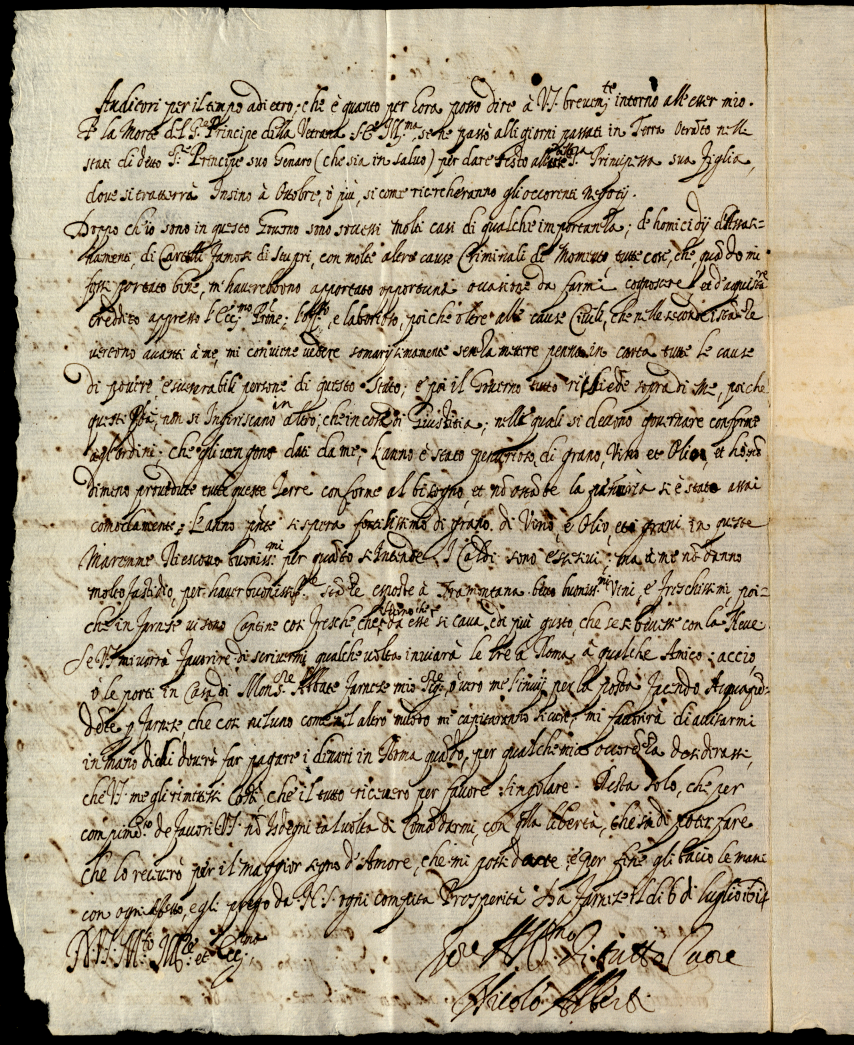 Auditori per il tempo adietro, che è quanto per hora posso dire à V.S. brevem.te intorno all'esser mio.
Per la Morte del S.r Principe della Vetrana se ne passò alli giorni passati in Terra Otranto nelli
stati di detto S.r Principe suo Genaro (che sia in salvo) per dare sesto alla S.ra Principessa sua figlia,
dove si tratterrà insino à Ottobre, ò più, si come ricercheranno gli occorenti negotij.
Doppo ch'io sono in questo Governo sono successi molti casi di qualche importanza; de homicidij d'Assas=
sinamenti, di Cartelli famosi di stupri, con molte altre cause Criminali di Momento tutte cose, che, quando mi
fossi portato bene, m'haverebbono apportato opportuna occasione da farmi cognoscere, et d'aquistar
credito appresso l'Ecc.mo P.rone; e laborioso, poiche oltre alle cause Civili, che nelle seconde istanze
vengono avanti à me, mi conviene vedere sommarissimamente senza mettere penna in carta tutte le cause
di povere, e miserabili persone di questo stato; e poi il Governo tutto risiede sopra di me, poiche
questi non si Ingeriscano in altro, che in cose di Giustitia; nelle quali si devono governare conforme
agl'ordini che gli vengono dati da me; L'anno è stato penurioso di grano, Vino et Olio, et ho non
dimeno provedute tutte queste Terre conforme al bisogno et non ostante la penuria si è stato assai
comodamente; L'anno p.nte si spera fertilissimo di grano, di Vino, e Olio, et i grani in queste
Maremme Riescono buoniss.mi per quanto s'intende. I Caldi sono eccessivi; ma à me non danno
molto fastidio, per haver buonissime stanze esposte à Tramontana. bevo buoniss.mi Vini, e freschissimi, poi=
che in Farnese vi sono Cantine così fresche che il vino che da esse si cava, è di più gusto, che se si bevesse con la Neve
Se V.S. mi vorrà favorire di scrivermi qualche volta inviarà le l.re a Roma, à qualche Amico acciò
ò le porti in Casa di Mons.re Abbate Farnese mio Sig.re, ò vero me l'invij per la posta facendo Acquapen=
dente p Farnese, che così nell'uno come nell'altro modo mi capitaranno sicure; mi favorirà di avisarmi
in mano di chi dovrò far pagare i dinari in Roma quando, per qualche mia occorenza desiderassi,
che V.S. me gli rimettessi costì che il tutto riceverò per favore singolare. Resta solo, che per
compim.to de favori V.S. non isdegni talvolta di Comandarmi, con quella libertà, che sà di poter fare
che lo riceverò per il maggior segno d'Amore, che mi possa dare, e per fine gli bacio le mani
con ogni affetto, e gli prego da N.S. ogni compita Prosperità Da Farnese il dì 6 di luglio
D.V.S. M.to Ill.re et Ecc.ma
Ser.re Aff.mo di tutto Cuore
Nicolò Alberti